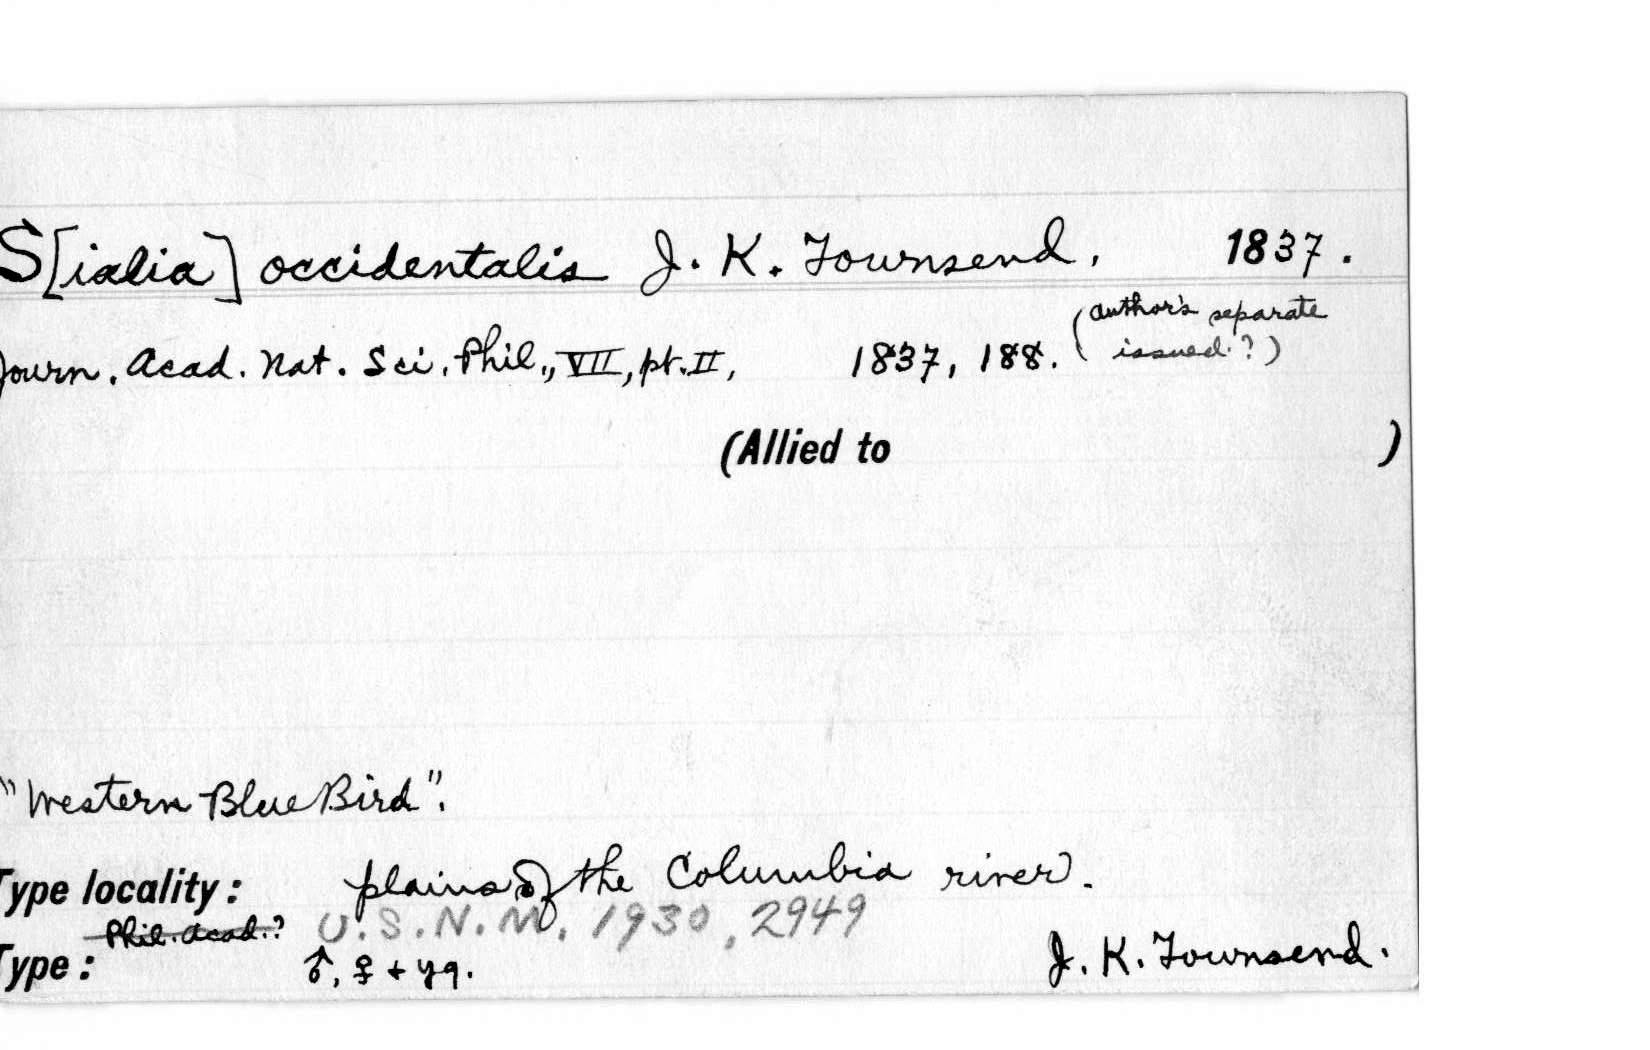 S[ialia] occidentalis J. K. Townsend. 1837.
Journ. Acad. Nat. Sci. Phil., VII, pt. II, 1837, 188. (author's separate
issued?)
(Allied to )
"Western Blue Bird".
Type locality: plains of the Columbia river.
Phil. Acad.? U.S.N.M. 1930, 2949
Type: ♂, ♀ + yg. J. K. Townsend.